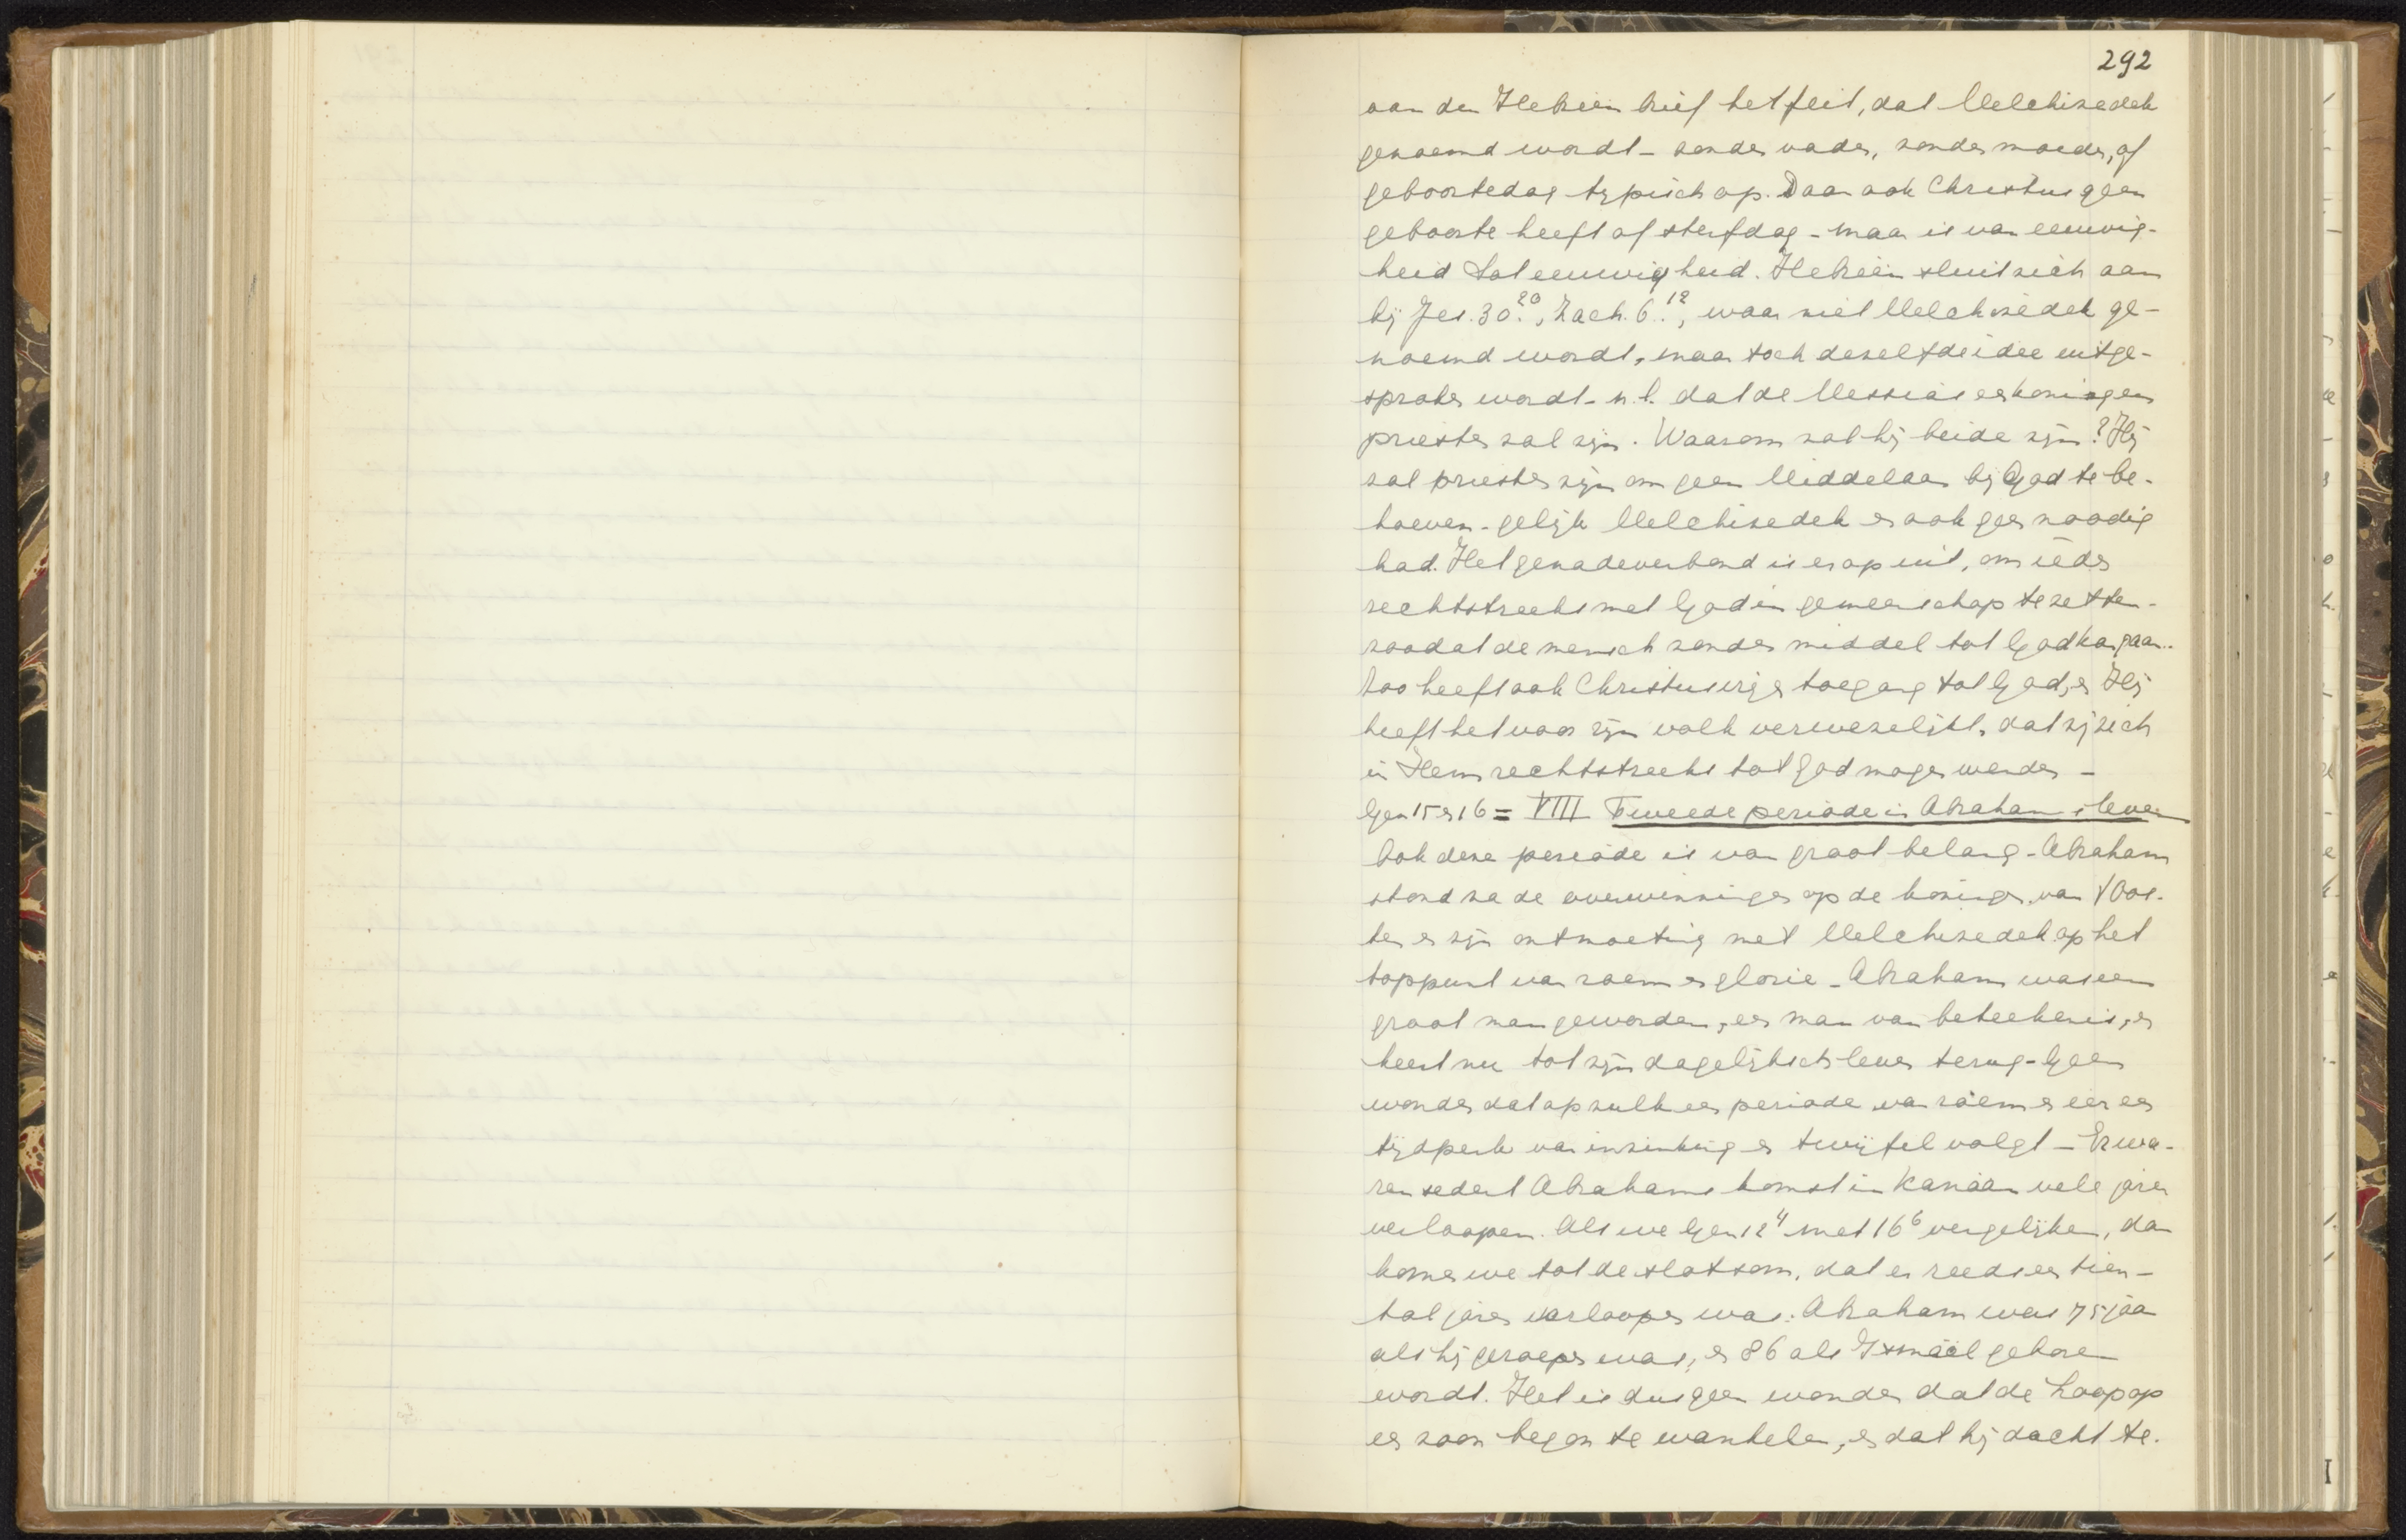 292
van den Hebreën brief het feit, dat Melchizedek
genoemd wordt - zonder vader, zonder moeder, of
geboortedag typisch op. Daar ook Christus geen
geboorte heeft of sterfdag - maar is van eeuwig-
heid tot eeuwigheid. Hebreën sluit zich aan
bij Jer. 30.20, Zach. 6.12, waar niet Melchizedek ge-
noemd wordt, maar toch dezelfde idee uitge-
sproken wordt - n.l. dat de Messias en koning en
priester zal zijn. Waarom zal hij beide zijn? Hij
zal priester zijn om geen Middelaar bij God te be-
hoeven - gelijk Melchizedek er ook geen noodig
had. Het genadeverbond is er op uit, om ieder
rechtstreeks met God in gemeenschap te zetten -
zoodat de mensch zonder middel tot God kan gaan.
Zoo heeft ook Christus vrije toegang tot God, en Hij
heeft het voor zijn volk verwezelijkt, dat zij zich
in Hem rechtstreeks tot God mogen wenden -
Gen 15 en 16 = VIII Tweede periode in Abrahams leven
Ook deze periode is van groot belang - Abraham
stond na de overwinningen op de koningen van t Oos-
ten en zijn ontmoeting met Melchizedek op het
toppunt van roem en glorie - Abraham was een
groot man geworden, een man van beteekenis, en
keert nu tot zijn dagelijksch leven terug - Geen
wonder dat op zulk een periode van roem en eer een
tijdperk van inzinking en twijfel volgt - Er wa-
ren sedert Abrahams komst in Kanaän vele jaren
verloopen. Als we Gen 12 4 met 16 6 vergelijken, dan
komen we tot de slotsom, dat er reeds een tien-
tal jaren verloopen was: Abraham was 75 jaar
als hij geroepen was, en 86 als Ismaël geboren
wordt. Het is dus geen wonder dat de hoop op
een zoon begon te wankelen, en dat hij dacht te.